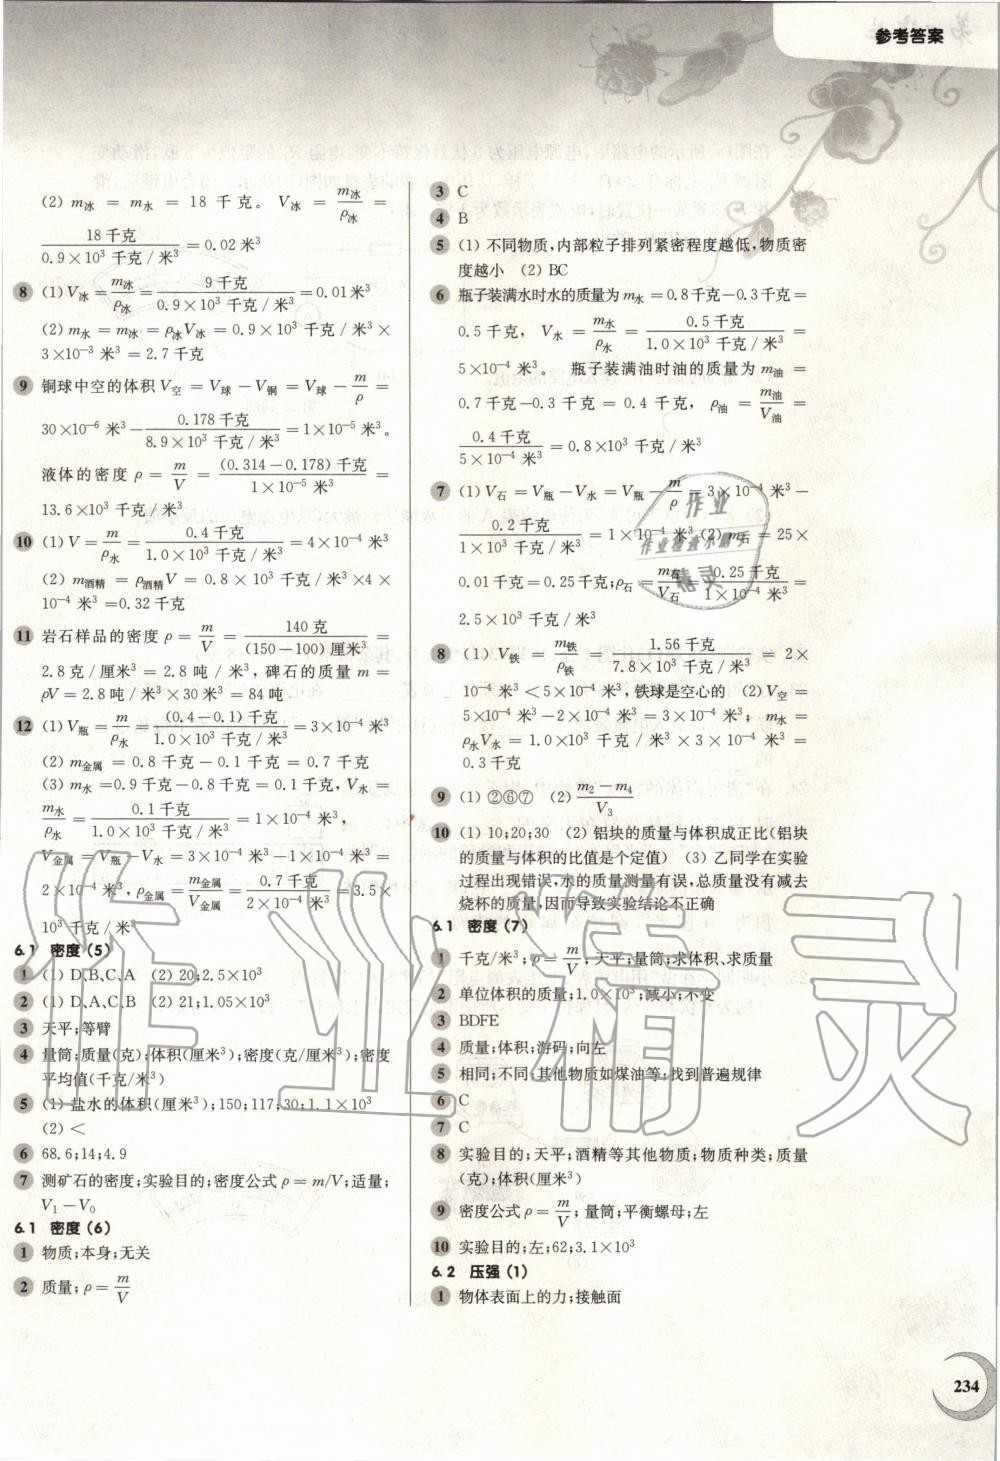 参考答案
(2) m冰 = m水 = 18 千克。 V冰 = m冰/ρ冰 =
18千克/(0.9×10³ 千克/米³) = 0.02 米³
8 (1) V冰 = m冰/ρ冰 = 9千克/(0.9×10³ 千克/米³) = 0.01米³
(2) m水 = m冰 = ρ冰V冰 = 0.9×10³ 千克/米³ ×
3×10⁻³ 米³ = 2.7 千克
9 铜球中空的体积 V空 = V球 − V铜 = V球 − m/ρ =
30×10⁻⁶ 米³ − 0.178千克/(8.9×10³ 千克/米³) = 1×10⁻⁵ 米³。
液体的密度 ρ = m/V = (0.314−0.178)千克/(1×10⁻⁵ 米³) =
13.6×10³ 千克/米³
10 (1) V = m/ρ水 = 0.4千克/(1.0×10³ 千克/米³) = 4×10⁻⁴ 米³
(2) m酒精 = ρ酒精V = 0.8×10³ 千克/米³ ×4×
10⁻⁴ 米³ =0.32千克
11 岩石样品的密度 ρ = m/V = 140克/((150−100)厘米³) =
2.8克/厘米³ = 2.8 吨/米³,碑石的质量 m =
ρV = 2.8吨/米³×30米³ = 84吨
12 (1) V瓶 = m/ρ水 = (0.4−0.1)千克/(1.0×10³ 千克/米³) = 3×10⁻⁴ 米³
(2) m金属 = 0.8千克−0.1千克 = 0.7千克
(3) m水 =0.9千克−0.8千克 = 0.1千克, V水 =
m水/ρ水 = 0.1千克/(1.0×10³ 千克/米³) = 1×10⁻⁴ 米³,
V金属 = V瓶 − V水 = 3×10⁻⁴ 米³−1×10⁻⁴ 米³ =
2×10⁻⁴ 米³, ρ金属 = m金属/V金属 = 0.7千克/(2×10⁻⁴ 米³) = 3.5×
10³ 千克/米³
6.1 密度(5)
1 (1) D、B、C、A (2) 20;2.5×10³
2 (1) D、A、C、B (2) 21;1.05×10³
3 天平;等臂
4 量筒;质量(克);体积(厘米³);密度(克/厘米³);密度
平均值(千克/米³)
5 (1) 盐水的体积(厘米³);150;117;30;1.1×10³
(2) <
6 68.6;14;4.9
7 测矿石的密度;实验目的;密度公式 ρ = m/V;适量;
V₁−V₀
6.1 密度(6)
1 物质;本身;无关
2 质量; ρ = m/V
3 C
4 B
5 (1) 不同物质,内部粒子排列紧密程度越低,物质密
度越小 (2) BC
6 瓶子装满水时水的质量为 m水 = 0.8千克−0.3千克 =
0.5千克, V水 = m水/ρ水 = 0.5千克/(1.0×10³ 千克/米³) =
5×10⁻⁴ 米³。 瓶子装满油时油的质量为 m油 =
0.7千克−0.3千克 = 0.4千克, ρ油 = m油/V油 =
0.4千克/(5×10⁻⁴ 米³) = 0.8×10³ 千克/米³
7 (1) V石 = V瓶 − V水 = V瓶 − m/ρ = 3×10⁻⁴ 米³−
0.2千克/(1×10³ 千克/米³) = 1×10⁻⁴ 米³ (2) m石 = 25×
0.01千克=0.25千克; ρ石 = m石/V石 = 0.25千克/(1×10⁻⁴ 米³) =
2.5×10³ 千克/米³
8 (1) V铁 = m铁/ρ铁 = 1.56千克/(7.8×10³ 千克/米³) = 2×
10⁻⁴ 米³<5×10⁻⁴ 米³,铁球是空心的 (2) V空 =
5×10⁻⁴ 米³−2×10⁻⁴ 米³ = 3×10⁻⁴ 米³; m水 =
ρ水V水 = 1.0×10³ 千克/米³×3×10⁻⁴ 米³ =
0.3千克
9 (1) ②⑥⑦ (2) (m₂−m₄)/V₃
10 (1) 10;20;30 (2) 铝块的质量与体积成正比(铝块
的质量与体积的比值是个定值) (3) 乙同学在实验
过程出现错误,水的质量测量有误,总质量没有减去
烧杯的质量,因而导致实验结论不正确
6.1 密度(7)
1 千克/米³; ρ = m/V; 天平;量筒;求体积、求质量
2 单位体积的质量;1.0×10³;减小;不变
3 BDFE
4 质量;体积;游码;向左
5 相同;不同;其他物质如煤油等;找到普遍规律
6 C
7 C
8 实验目的;天平;酒精等其他物质;物质种类;质量
(克);体积(厘米³)
9 密度公式 ρ = m/V; 量筒;平衡螺母;左
10 实验目的;左;62;3.1×10³
6.2 压强(1)
1 物体表面上的力;接触面
234
作业
作业检查小帮手
精灵
作业精灵